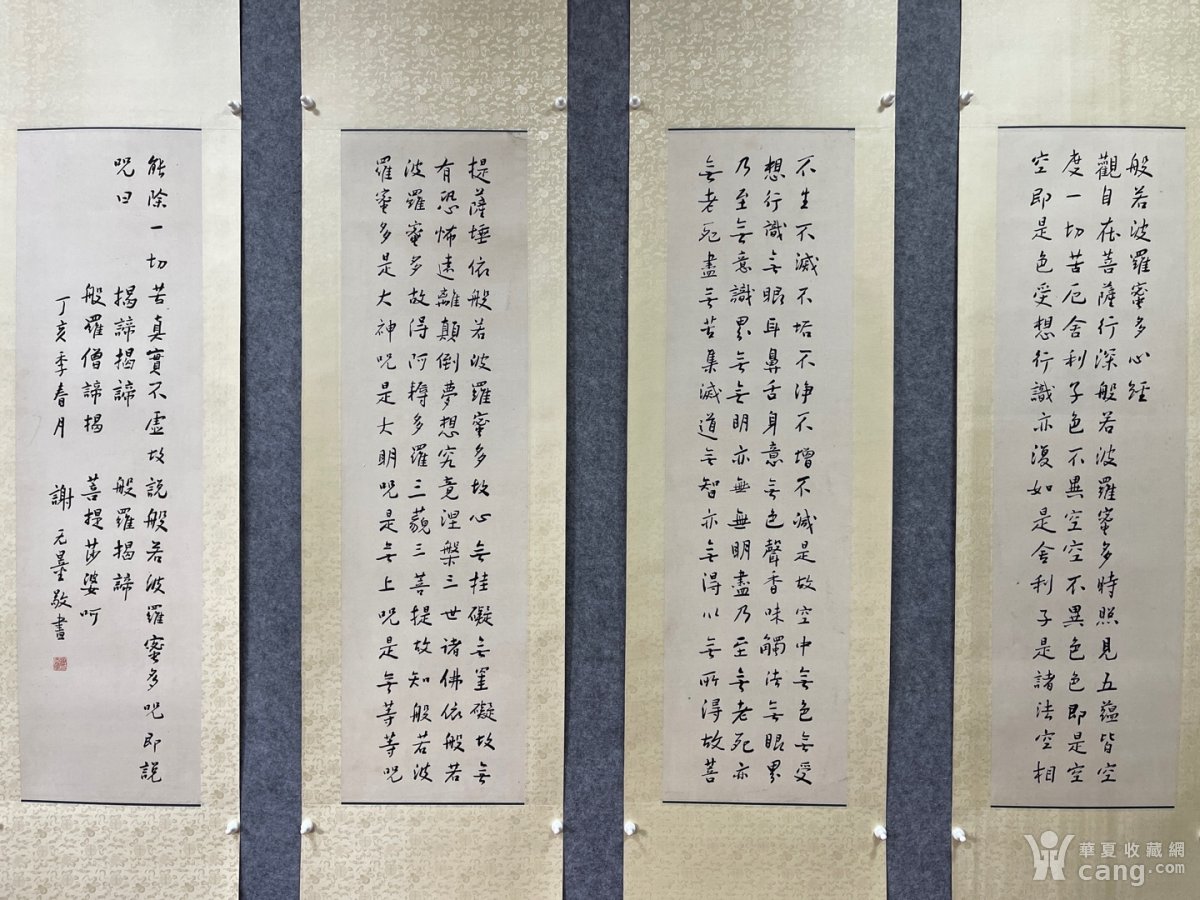 般若波羅蜜多心經
觀自在菩薩行深般若波羅蜜多時照見五蘊皆空
度一切苦厄舍利子色不異空空不異色色即是空
空即是色受想行識亦復如是舍利子是諸法空相
不生不滅不垢不淨不增不減是故空中無色無受
想行識無眼耳鼻舌身意無色聲香味觸法無眼界
乃至無意識界無無明亦無無明盡乃至無老死亦
無老死盡無苦集滅道無智亦無得以無所得故菩
提薩埵依般若波羅蜜多故心無挂礙無罣礙故無
有恐怖遠離顛倒夢想究竟涅槃三世諸佛依般若
波羅蜜多故得阿耨多羅三藐三菩提故知般若波
羅蜜多是大神咒是大明咒是無上咒是無等等咒
能除一切苦真實不虛故說般若波羅蜜多咒即說
咒曰 揭諦揭諦 般羅揭諦
般羅僧諦揭 菩提莎婆呵
丁亥季春月 謝元量敬書
華夏收藏網
cang.com